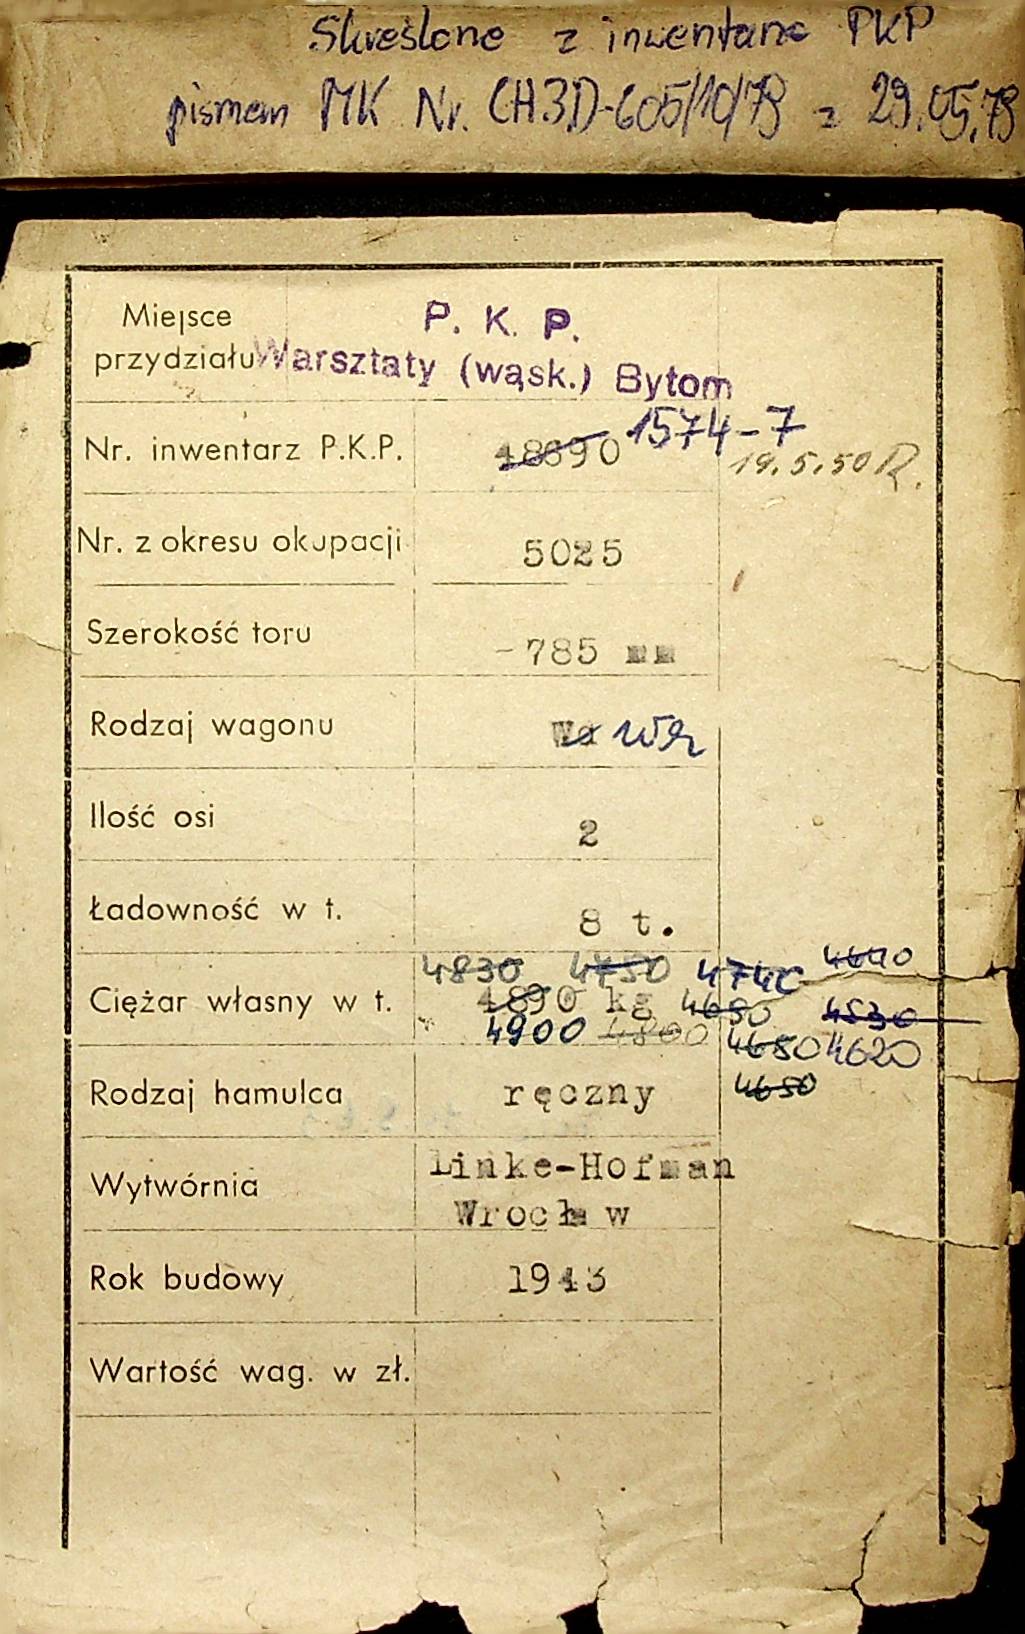 Skreślone z inwentarza PKP
pismem MK Nr. CH3D-605/10/79 z 29.05.79
Miejsce przydziału P. K. P.
Warsztaty (wąsk.) Bytom
Nr. inwentarz P.K.P. 18690 1574-7
19.5.50 R.
Nr. z okresu okupacji 5025
Szerokość toru -785 mm
Rodzaj wagonu Wd
Ilość osi 2
Ładowność w t. 8 t.
4830 4750 4740 4640
Ciężar własny w t. 4890 kg 4650 4530
4900 4800 4650 4620
4650
Rodzaj hamulca ręczny
Wytwórnia Linke-Hofman
Wrocław
Rok budowy 1943
Wartość wag. w zł.